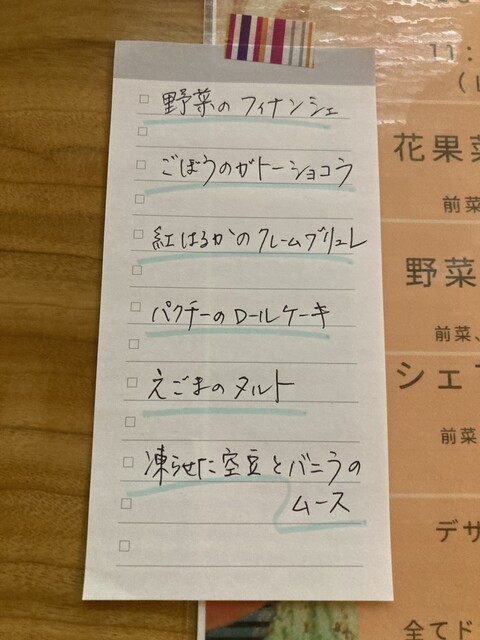 野菜のフィナンシェ
ごぼうのガトーショコラ
紅はるかのクレームブリュレ
パクチーのロールケーキ
えごまのタルト
凍らせた空豆とバニラの
ムース
11:
花果菜
前菜
野菜
前菜、
シェフ
前菜
デザ
全てド